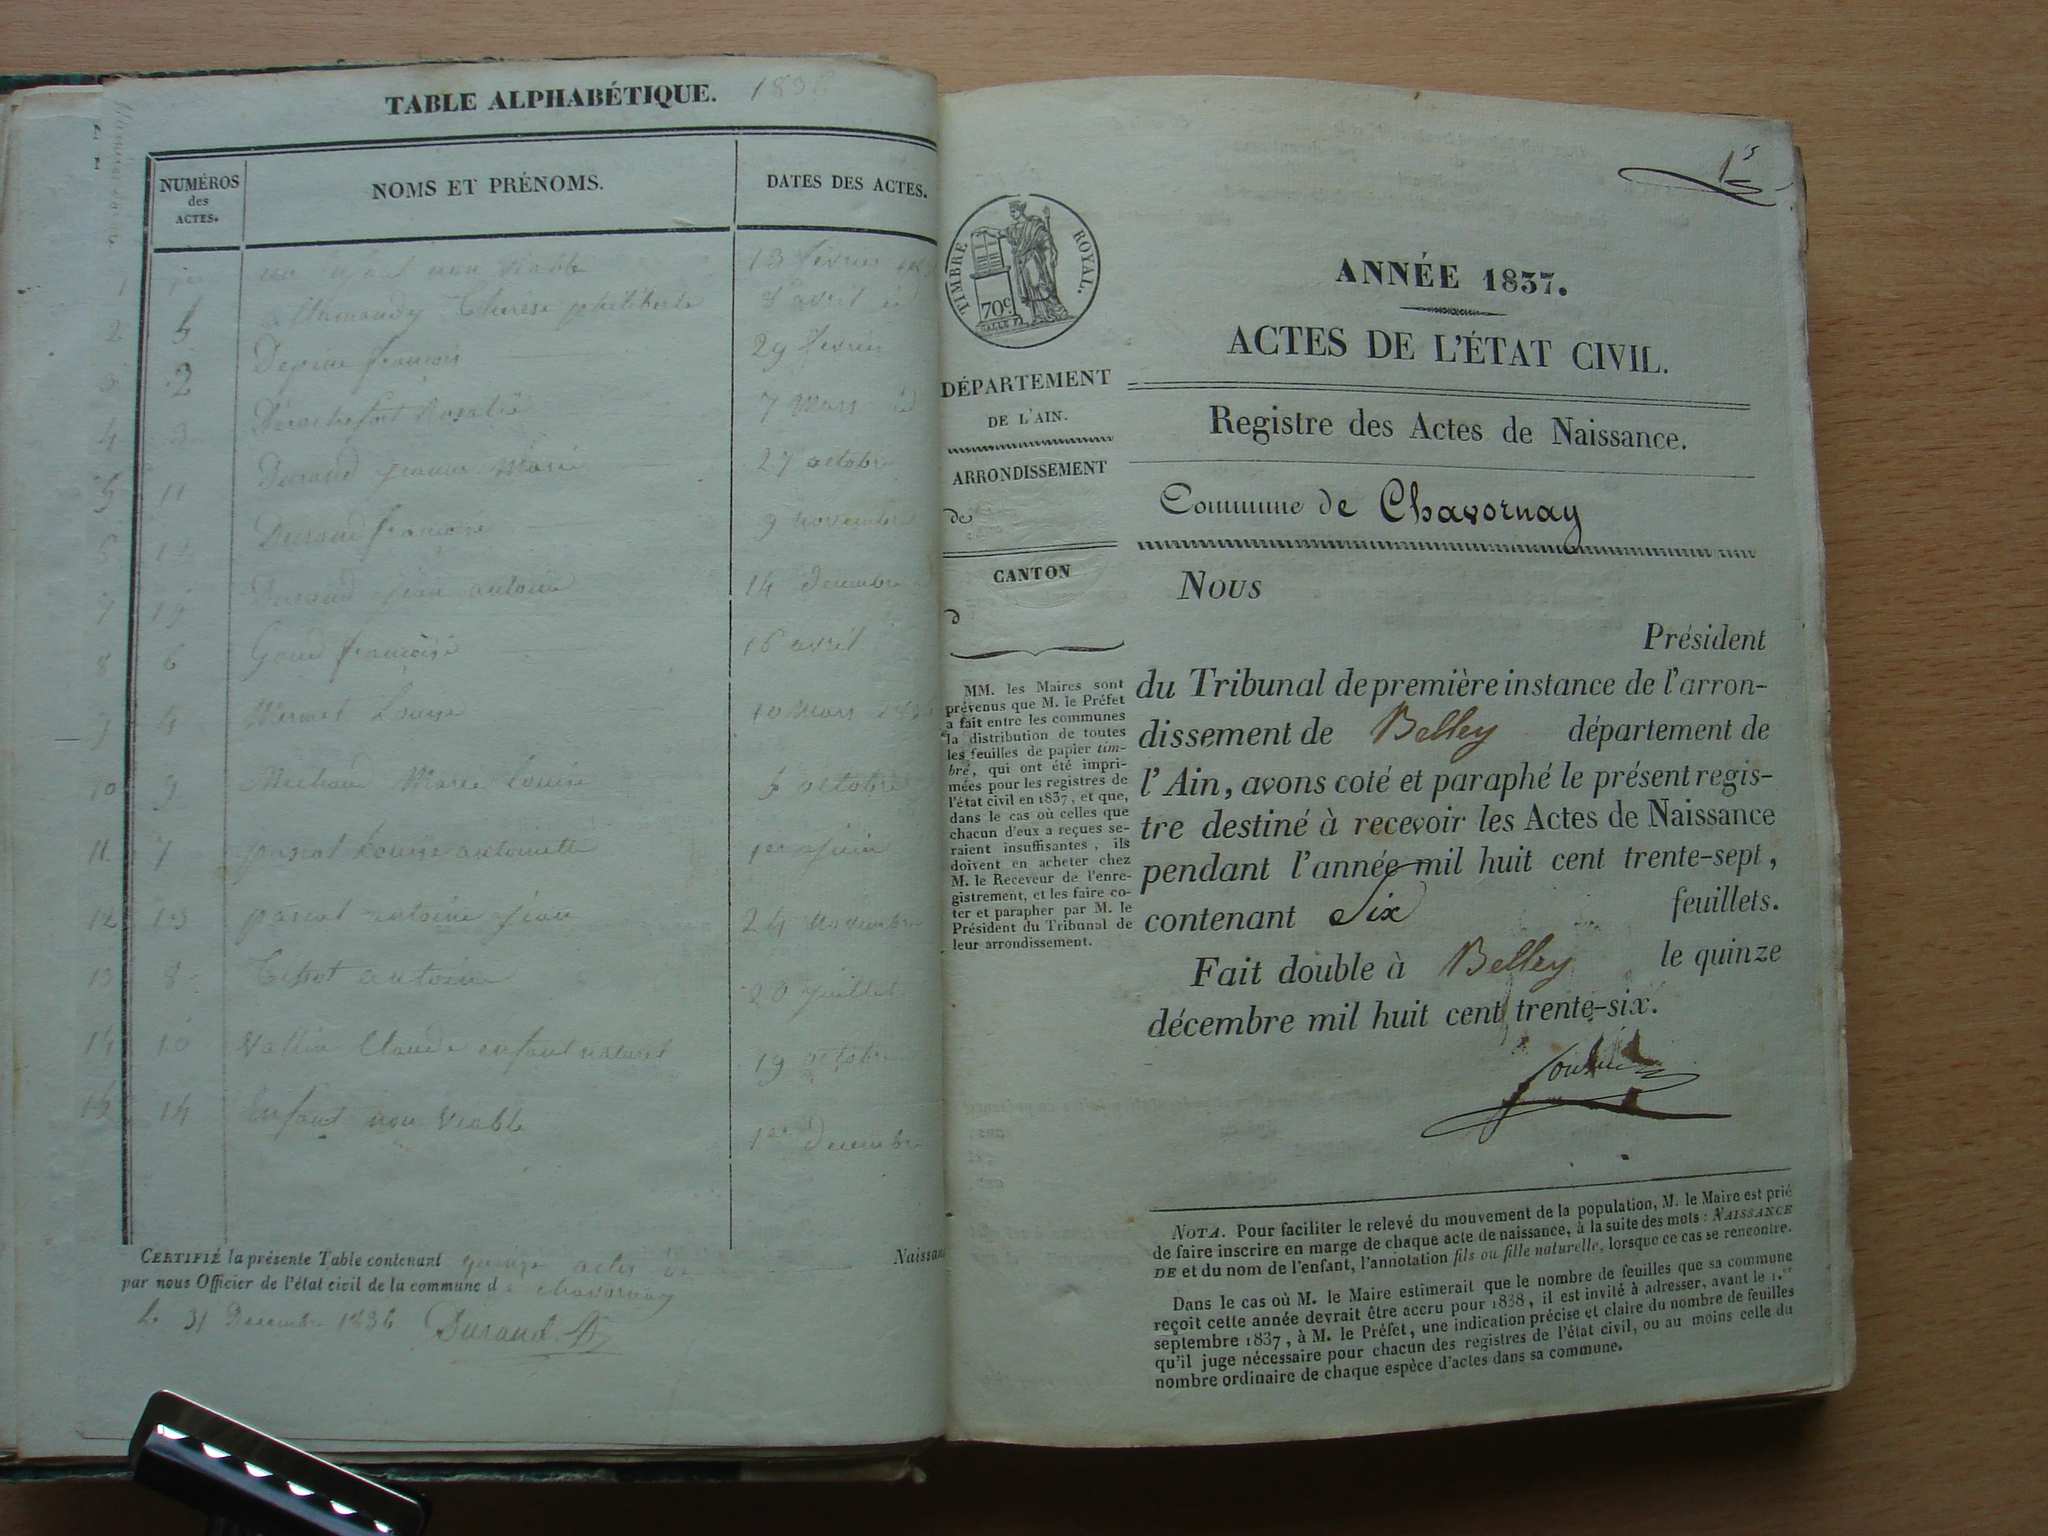 TABLE ALPHABÉTIQUE.
NUMÉROS des ACTES.
NOMS ET PRÉNOMS.
DATES DES ACTES.
1 un enfant non viable 13 février
2 5 Thérèse philiberte 8 avril
2 françois 29 février
4 3 Rosalie 7 Mars
5 11 Durand Marie 27 octobre
12 Durand françoise 9 novembre
7 15 Durand jean antoine 14 decembre
8 6 françoise 16 avril
9 4 Mermet Louise 10 Mars
10 9 Marie Louise octobre
11 7 pascal Louise antoinette 1er juin
12 13 pascal antoine jean 24 novembre
13 8 Tissot antoine 20 juillet
14 10 Vallin Claude enfant naturel 19 octobre
15 14 Enfant non viable 1er decembre
CERTIFIÉ la présente Table contenant quinze actes
par nous Officier de l'état civil de la commune de chavornay
le 31 Decembre 1836 Durand
1
TIMBRE ROYAL.
70c
DÉPARTEMENT
DE L'AIN.
ARRONDISSEMENT
de
CANTON
d
MM. les Maires sont
prévenus que M. le Préfet
a fait entre les communes
la distribution de toutes
les feuilles de papier tim-
bré, qui ont été impri-
mées pour les registres de
l'état civil en 1837, et que,
dans le cas où celles que
chacun d'eux a reçues se-
raient insuffisantes, ils
doivent en acheter chez
M. le Receveur de l'enre-
gistrement, et les faire co-
ter et parapher par M. le
Président du Tribunal de
leur arrondissement.
ANNÉE 1837.
ACTES DE L'ÉTAT CIVIL.
Registre des Actes de Naissance.
Commune de Chavornay
Nous
Président
du Tribunal de première instance de l'arron-
dissement de Belley département de
l'Ain, avons coté et paraphé le présent regis-
tre destiné à recevoir les Actes de Naissance
pendant l'année mil huit cent trente-sept,
contenant Six feuillets.
Fait double à Belley le quinze
décembre mil huit cent trente-six.
NOTA. Pour faciliter le relevé du mouvement de la population, M. le Maire est prié
de faire inscrire en marge de chaque acte de naissance, à la suite des mots : NAISSANCE
DE et du nom de l'enfant, l'annotation fils ou fille naturelle, lorsque ce cas se rencontre.
Dans le cas où M. le Maire estimerait que le nombre de feuilles que sa commune
reçoit cette année devrait être accru pour 1838, il est invité à adresser, avant le 1.er
septembre 1837, à M. le Préfet, une indication précise et claire du nombre de feuilles
qu'il juge nécessaire pour chacun des registres de l'état civil, ou au moins celle du
nombre ordinaire de chaque espèce d'actes dans sa commune.